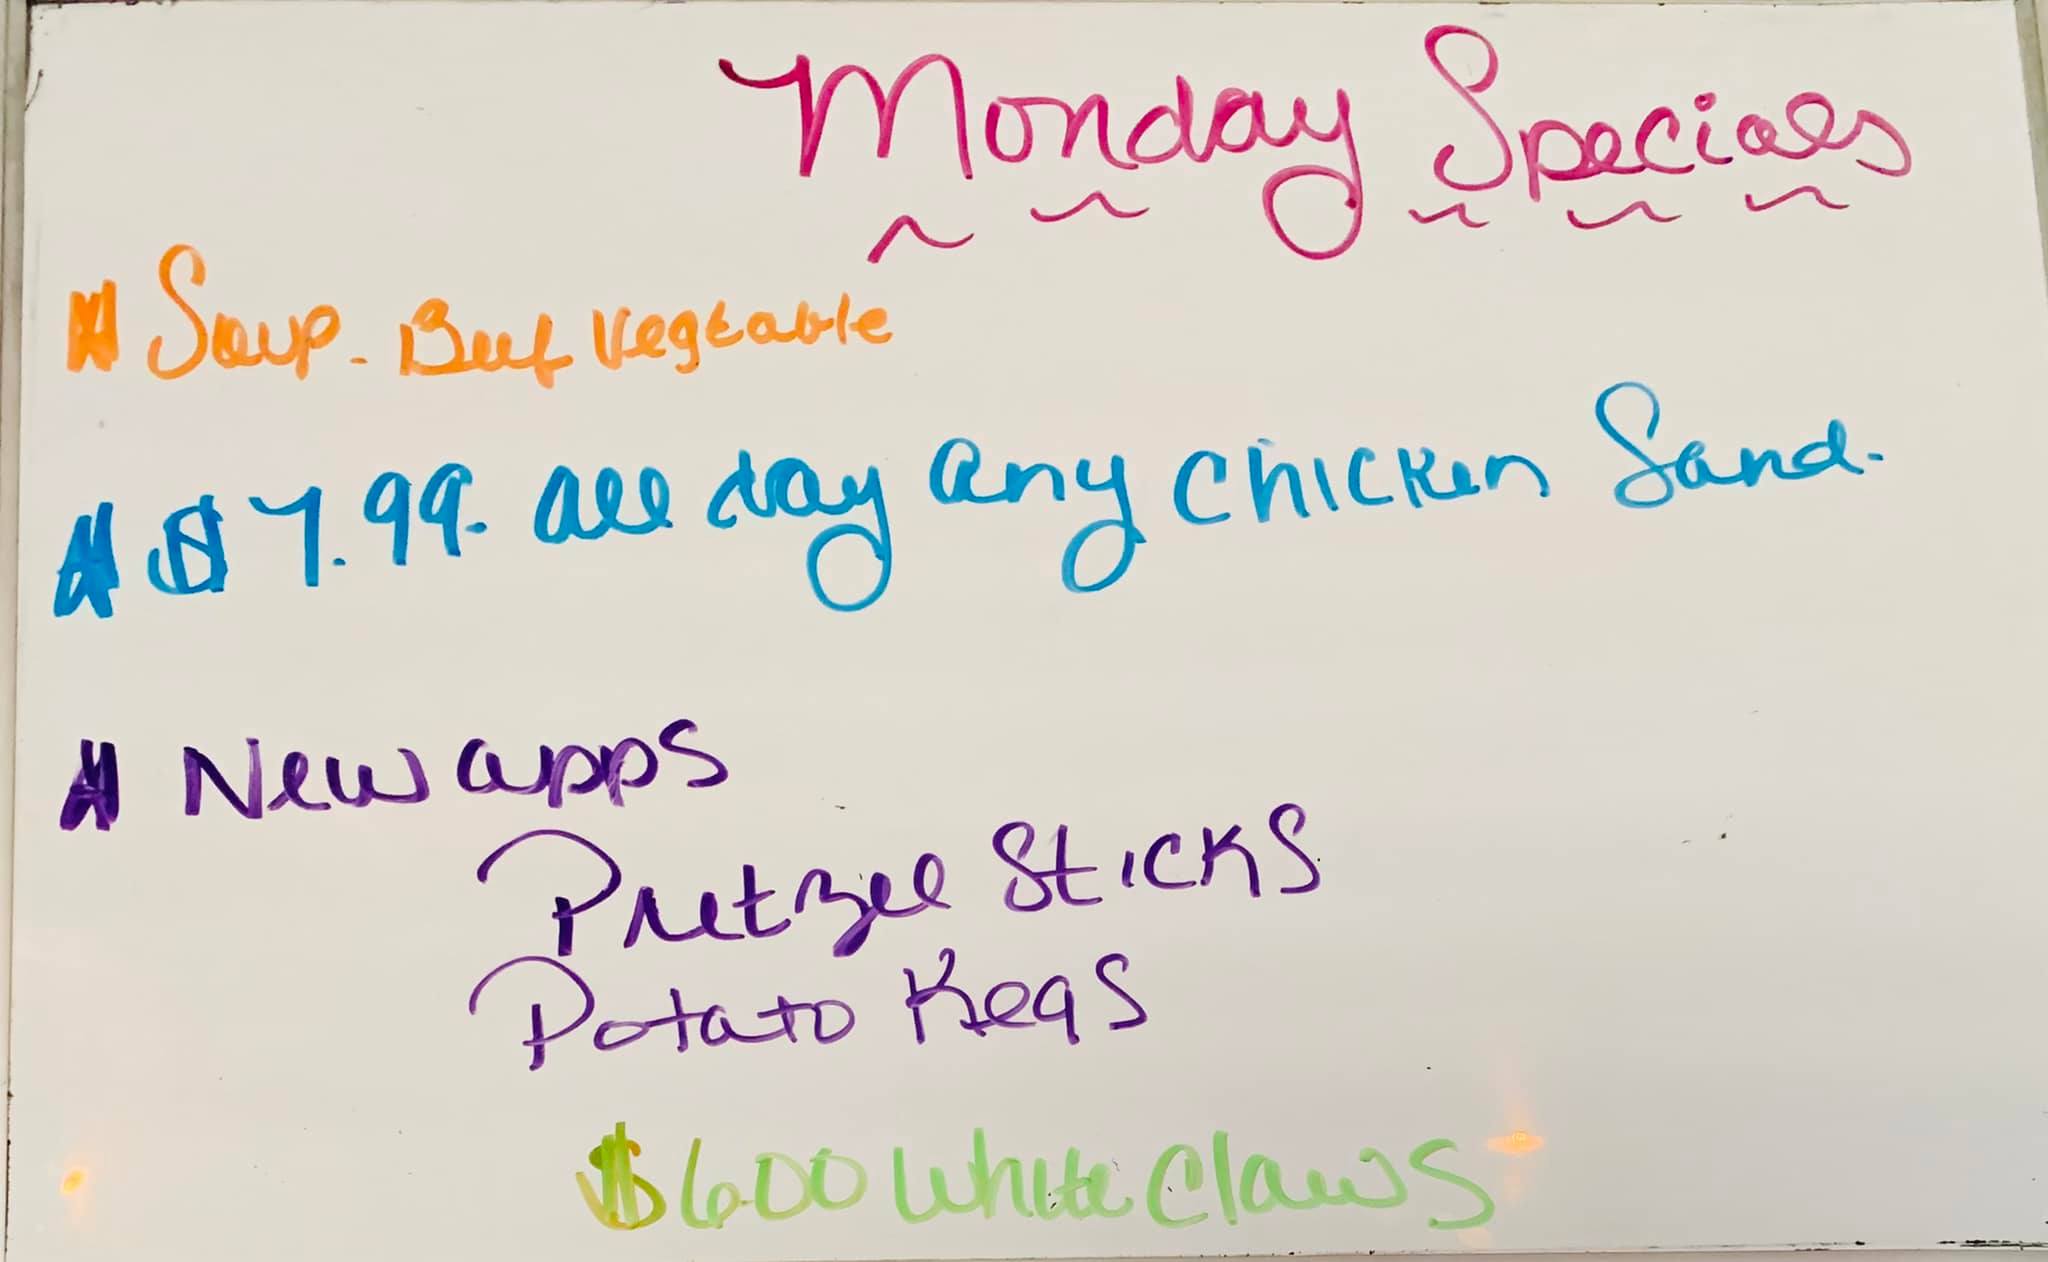 Monday Specials
Soup - Beef Vegtable
$7.99 - all day any Chicken Sand.
New apps
Pretzel Sticks
Potato Kegs
$6.00 White Claws